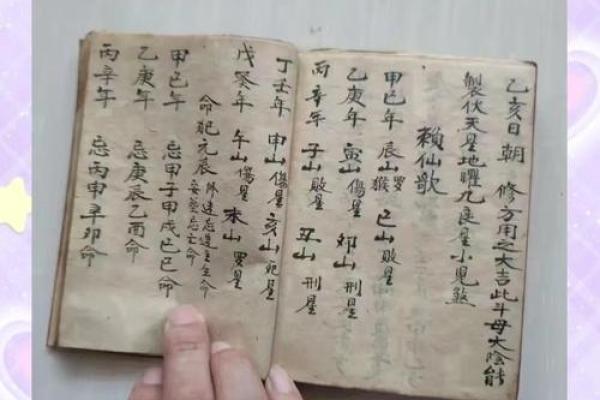 乙亥日朝 修方用之大吉此斗母大陰能
製伏天星地曜九良星小兒煞
賴仙歌
甲已年 辰山羅猴 巳山敗星
乙庚年 寅山傷星 卯山刑星
丙辛年 子山敗星 丑山刑星
丁壬年 申山傷星 亥山死星
戊癸年 午山傷星 未山羅星
命犯元辰 修造忌邊主生命
安葬忌亡命
甲已年 忌甲子甲戌巳巳命
乙庚年 忌庚辰乙酉命
丙辛年 忌丙申辛卯命